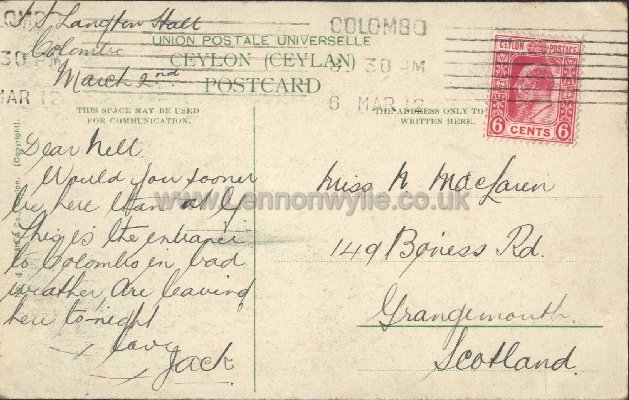 COLOMBO
30 PM
8 30 PM
MAR 12
6 MAR 12
CEYLON POSTAGE
6 CENTS 6
S.S. Langton Hall
Colombo
March 2nd
UNION POSTALE UNIVERSELLE
CEYLON (CEYLAN)
POSTCARD
THIS SPACE MAY BE USED
FOR COMMUNICATION.
THE ADDRESS ONLY TO
WRITTEN HERE.
(Copyright).
Dear Nell.
Would you sooner
be here than at
This is the entrance
to Colombo in bad
weather. Are leaving
here to-night
x love
x Jack
Miss N. MacLaren
149 Boness Rd.
Grangemouth.
Scotland.
www.Lennonwylie.co.uk